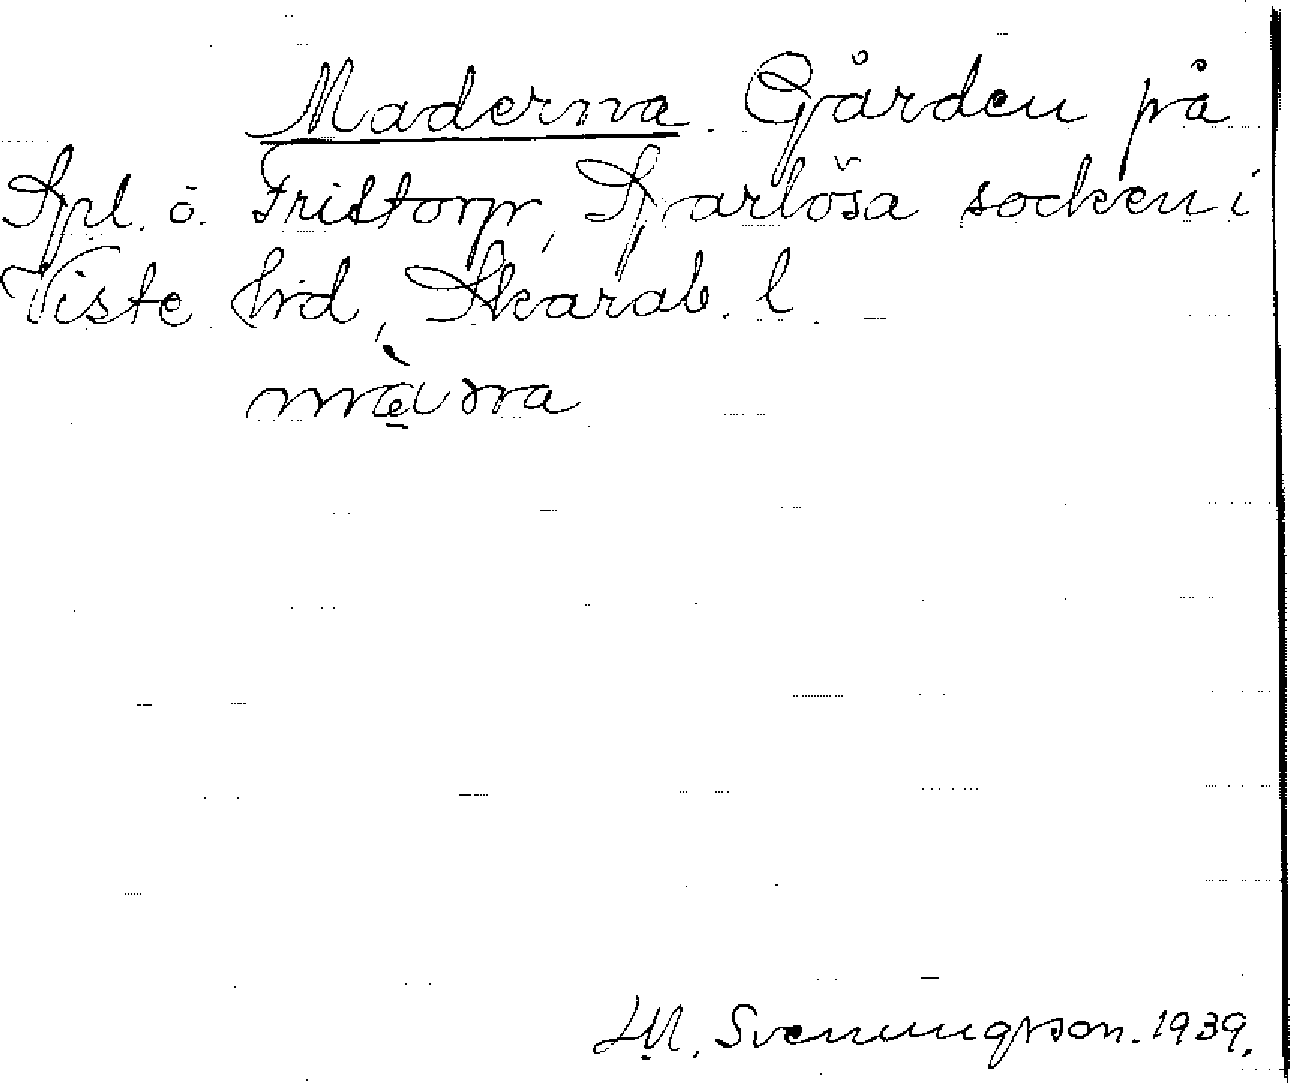 Maderna. Gården på
Spl. ö. Fristorp, Sparlösa socken i
Viste hrd, Skarab. l.
M. Svenungsson. 1939.